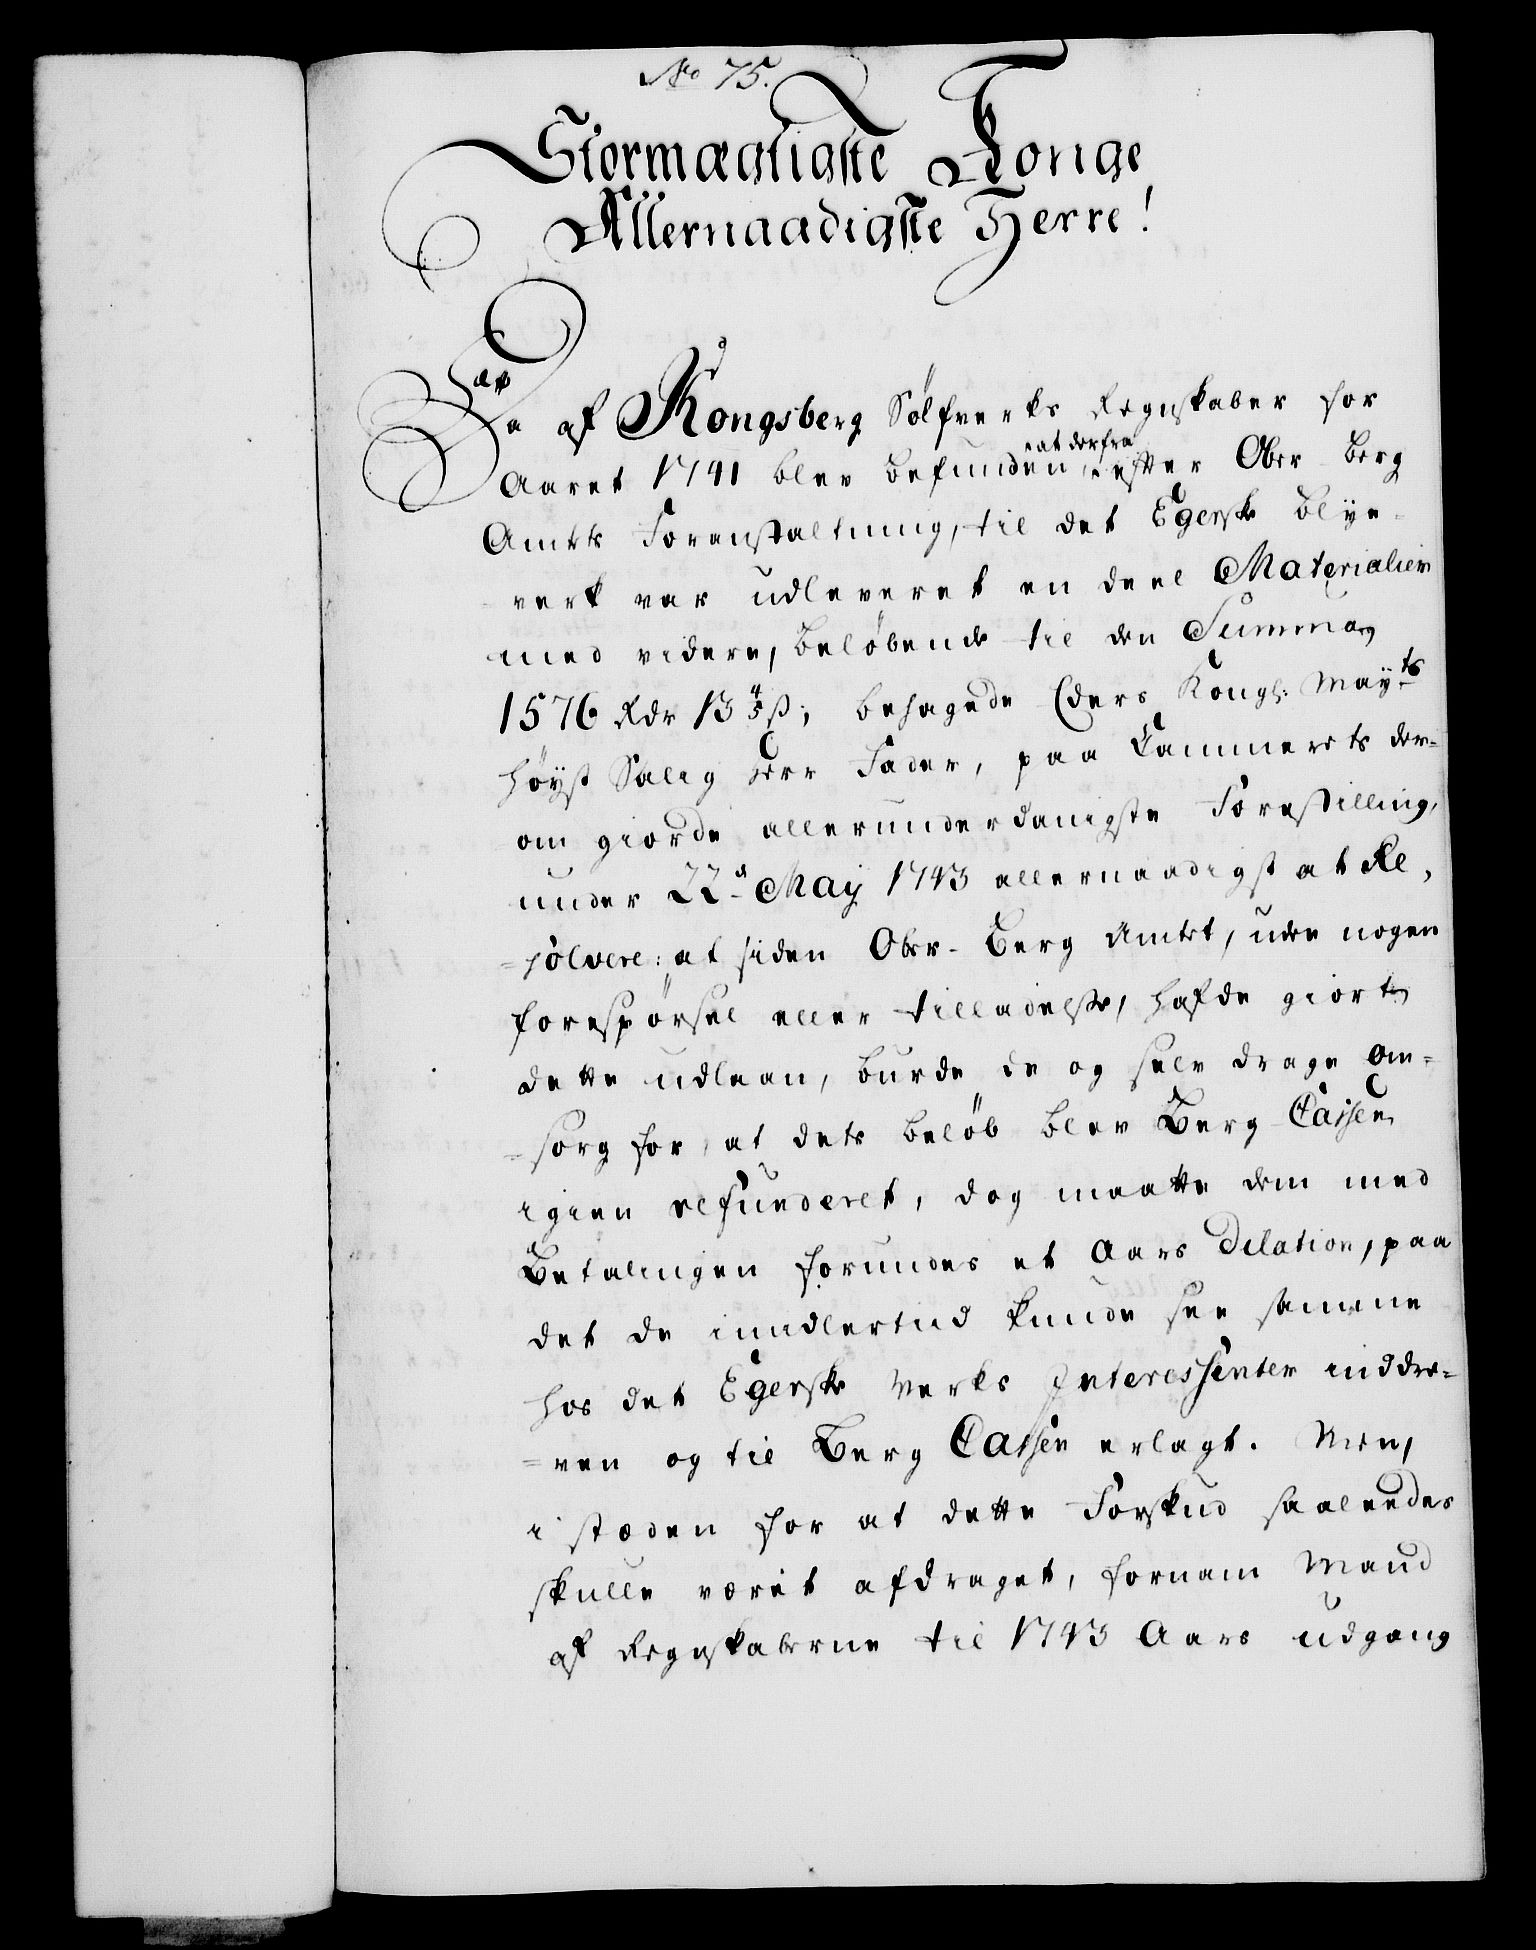 No 75.
Stormægtigste Konge
Allernaadigste Herre!
Da af Kongsberg Sølfverks Regnskaber for
at derfra
Aaret 1741 blev befunden, efter Ober-Berg
Amtets Foranstaltning, til det Egerske blye-
verk var udleveret en deel Materialier
med videre, beløbende til den Summa
1576 Rdr 13 4/5 ß; behagede Eders Kongl: Mayts
høyst Salig Herr Fader, paa Cammerets der=
om giorde allerunderdanigste Forestilling,
under 22d May 1743 allernaadigst at Re,
=solvere: at siden Ober-Berg Amtet, uden nogen
forespørsel eller tilladelse, hafde giort
dette udlaan, burde de og selv drage om=
=sorg for, at dets beløb blev Berg-Cassen
igien refunderet, dog maatte dem med
Betalingen forundes et Aars Dilation, paa
det de imidlertiid kunde see samme
hos det Egerske Verks Interessenter inddre=
=ven og til Berg Cassen erlagt. Men,
i stæden for at dette Forskud saaleedes
skulle været afdraget, fornam Mand
af Regnskaberne til 1743 Aars udgang